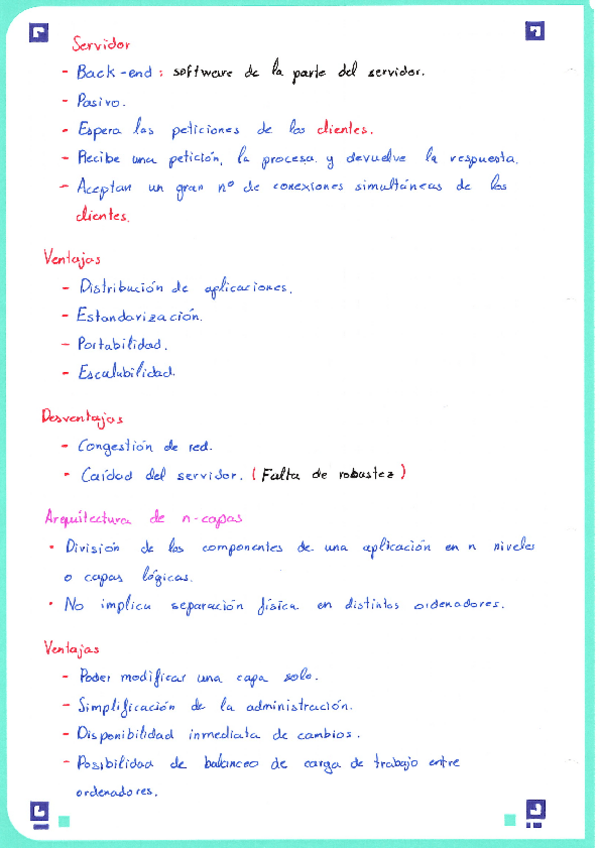 Servidor
- Back-end: software de la parte del servidor.
- Pasivo.
- Espera las peticiones de los clientes.
- Recibe una petición, la procesa y devuelve la respuesta.
- Aceptan un gran nº de conexiones simultáneas de los
clientes.
Ventajas
- Distribución de aplicaciones.
- Estandarización.
- Portabilidad.
- Escalabilidad.
Desventajas
- Congestión de red.
- Caídad del servidor. (Falta de robustez)
Arquitectura de n-capas
• División de los componentes de una aplicación en n niveles
o capas lógicas.
• No implica separación física en distintos ordenadores.
Ventajas
- Poder modificar una capa solo.
- Simplificación de la administración.
- Disponibilidad inmediata de cambios.
- Posibilidad de balanceo de carga de trabajo entre
ordenadores.